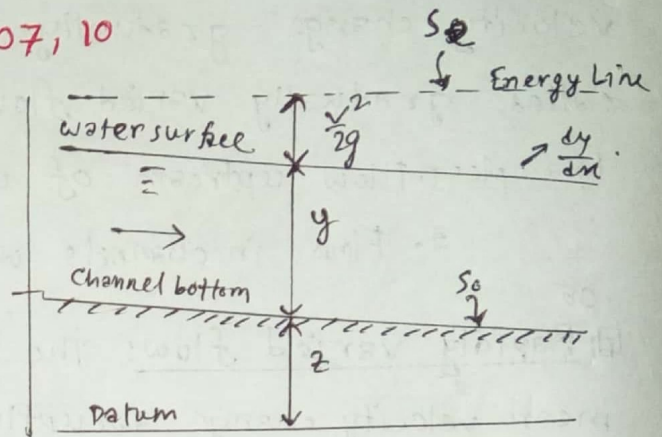 07, 10
Se
Energy Line
v²/2g
water surface
dy/dx
y
Channel bottom
S₀
z
Datum